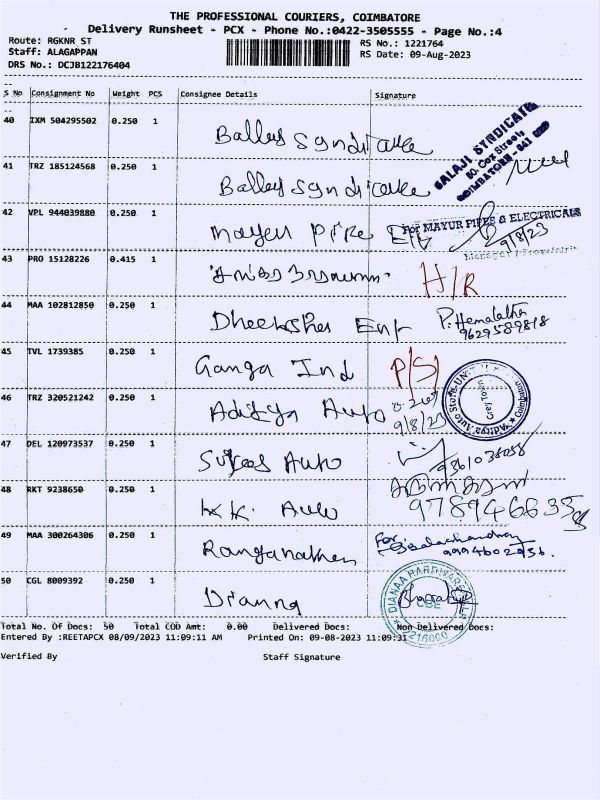 THE PROFESSIONAL COURIERS, COIMBATORE
Delivery Runsheet - PCX - Phone No.:0422-3505555 - Page No.:4
Route: RGKNR ST RS No.: 1221764
Staff: ALAGAPPAN RS Date: 09-Aug-2023
DRS No.: DCJB122176404
S No Consignment No Weight PCS Consignee Details Signature
40 IXM 504295502 0.250 1 Syndicate BALAJI SYNDICATE
COIMBATORE - 641
41 TRZ 185124568 0.250 1 Syndicate
42 VPL 944039880 0.250 1 Mayur Pipe For MAYUR PIPES & ELECTRICALS
9/8/23
43 PRO 15128226 0.415 1 H/R
44 MAA 102812850 0.250 1 Ent P. Hemalatha
9629589818
45 TVL 1739385 0.250 1 Ganga Ind P/S
46 TRZ 321521242 0.250 1 Aditya Auto 9/8/23 Aditya Auto Store
47 DEL 120973537 0.250 1 Auto
48 RKT 9238650 0.250 1 K.K. Auto
49 MAA 300264306 0.250 1 Ranganathan For
50 CGL 8009392 0.250 1 Dianna DIANAA HARDWARE
CBE
Total No. Of Docs: 50 Total COD Amt: 0.00 Delivered Docs: Non Delivered Docs:
Entered By :REETAPCX 08/09/2023 11:09:11 AM Printed On: 09-08-2023 11:09:31
Verified By Staff Signature